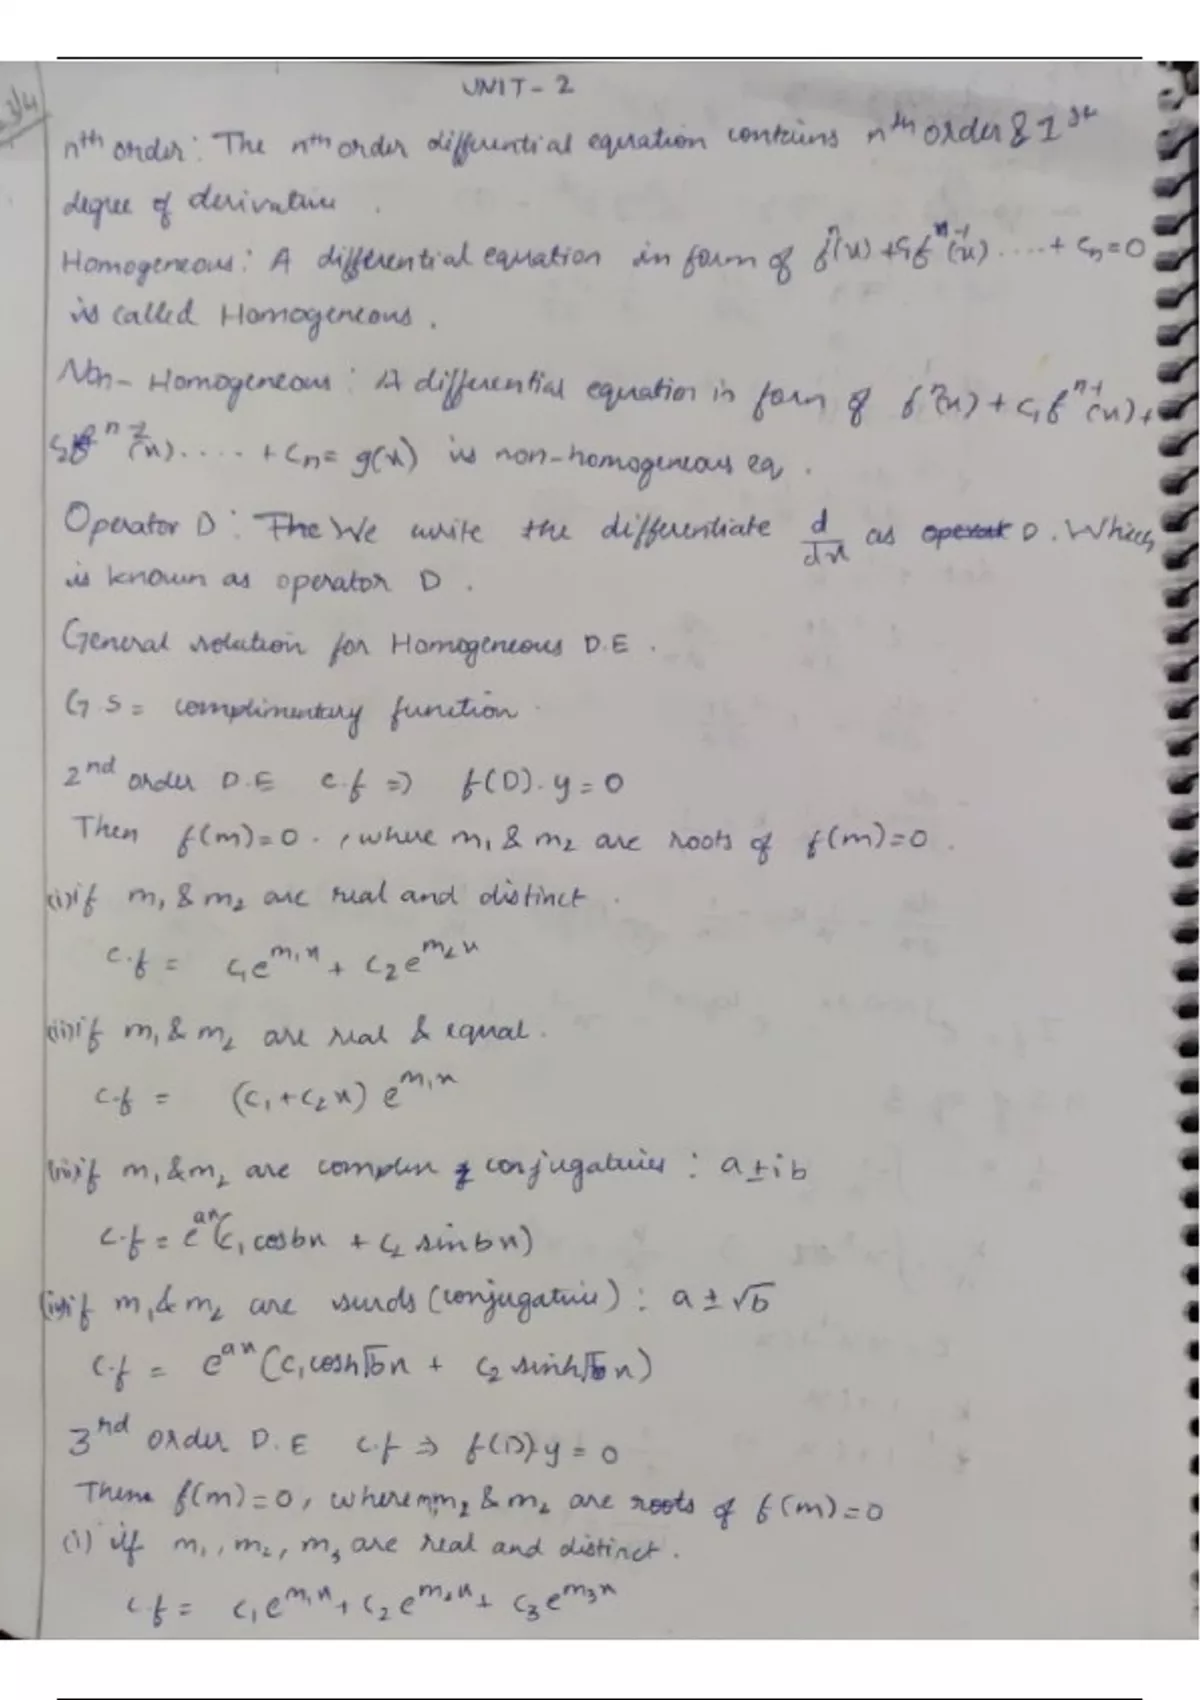 UNIT - 2
nth order : The nth order differential equation contains nth order & 1st
degree of derivative .
Homogeneous : A differential equation in form of fⁿ(x) + c₁fⁿ⁻¹(x) .... + cₙ = 0
is called Homogeneous .
Non - Homogeneous : A differential equation in form of fⁿ(x) + c₁fⁿ⁻¹(x) +
c₂fⁿ⁻²(x) .... + cₙ = g(x) is non-homogeneous eq .
Operator D : The We write the differentiate d/dx as operat D . Which
is known as operator D .
General solution for Homogeneous D.E .
G.S = complimentary function .
2nd order D.E c.f => f(D).y = 0
Then f(m) = 0 . , where m₁ & m₂ are roots of f(m) = 0 .
(i) if m₁ & m₂ are real and distinct .
c.f = c₁e^m₁x + c₂e^m₂x
(ii) if m₁ & m₂ are real & equal .
c.f = (c₁ + c₂x) e^m₁x
(iii) if m₁ & m₂ are complex : a ± ib
c.f = e^ax(c₁ cosbx + c₂ sinbx)
(iv) if m₁ & m₂ are surds : a ± √b
c.f = e^ax (c₁ cosh√bx + c₂ sinh√bx)
3rd order D.E c.f => f(D).y = 0
Then f(m) = 0 , where m₂ & m₂ are roots of f(m) = 0
(i) if m₁ , m₂ , m₃ are real and distinct .
c.f = c₁e^m₁x + c₂e^m₂x + c₃e^m₃x